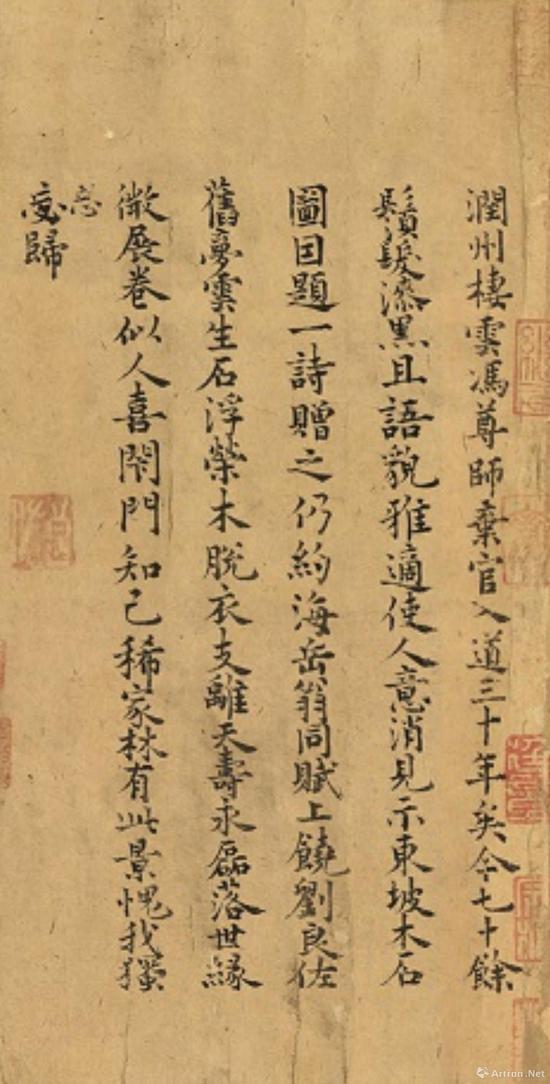 潤州棲雲馮尊師棄官入道三十年矣今七十餘
鬚髮漆黑且語貌雅適使人意消見示東坡木石
圖因題一詩贈之仍約海岳翁同賦上饒劉良佐
舊夢雲生石浮榮木脫衣支離天壽永磊落世緣
微展卷似人喜閑門知己稀家林有此景愧我獨
忘歸
Artron.Net